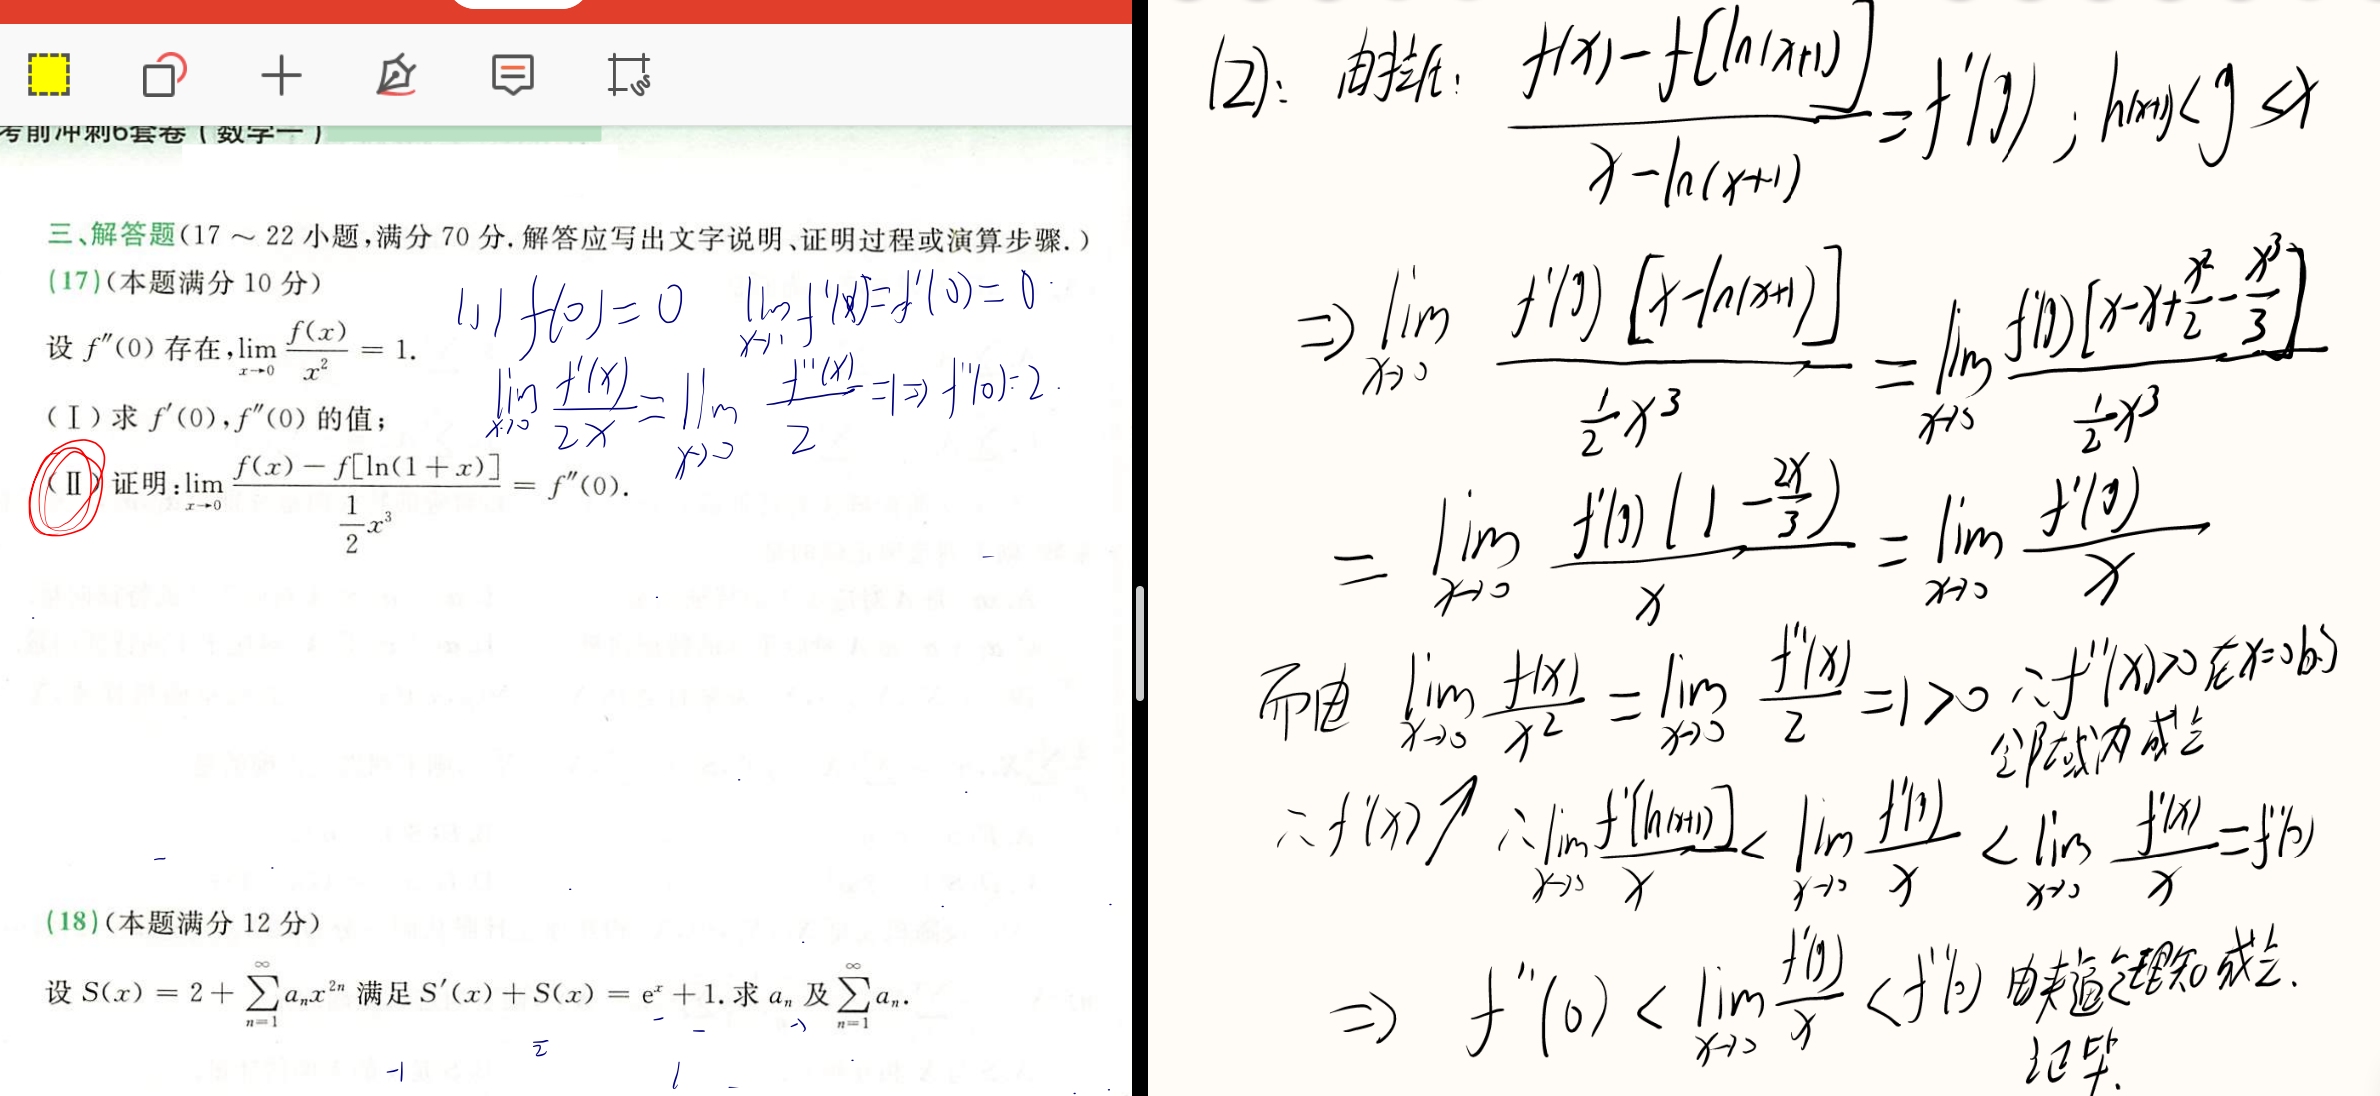 考前冲刺6套卷(数学一)
三、解答题(17～22小题,满分70分.解答应写出文字说明、证明过程或演算步骤.)
(17)(本题满分10分)
设 f″(0) 存在, lim_{x→0} f(x)/x² = 1.
(Ⅰ)求 f′(0), f″(0) 的值;
(Ⅱ)证明: lim_{x→0} (f(x) − f[ln(1+x)])/(1/2 x³) = f″(0).
(1) f(0)=0 lim f′(x)=f′(0)=0
lim_{x→0} f′(x)/2x = lim_{x→0} f″(x)/2 =1 ⇒ f″(0)=2.
(18)(本题满分12分)
设 S(x) = 2 + ∑_{n=1}^{∞} aₙx²ⁿ 满足 S′(x) + S(x) = eˣ + 1. 求 aₙ 及 ∑_{n=1}^{∞} aₙ.
(2): 由拉氏: (f(x)−f[ln(x+1)])/(x−ln(x+1)) = f′(y) ; ln(x+1)<y<x
⇒ lim_{x→0} f′(y)[x−ln(x+1)]/(1/2 x³) = lim_{x→0} f′(y)[x−x+x²/2−x³/3]/(1/2 x³)
= lim_{x→0} f′(y)(1−2x/3)/x = lim_{x→0} f′(y)/x
而由 lim_{x→0} f(x)/x² = lim_{x→0} f″(x)/2 =1>0 ∴f″(x)>0 在x=0的
邻域内成立
∴f′(x)↗ ∴lim_{x→0} f′[ln(x+1)]/x < lim_{x→0} f′(y)/x < lim_{x→0} f′(x)/x = f″(0)
⇒ f″(0) < lim_{x→0} f′(y)/x < f″(0) 由夹逼定理知成立.
证毕.